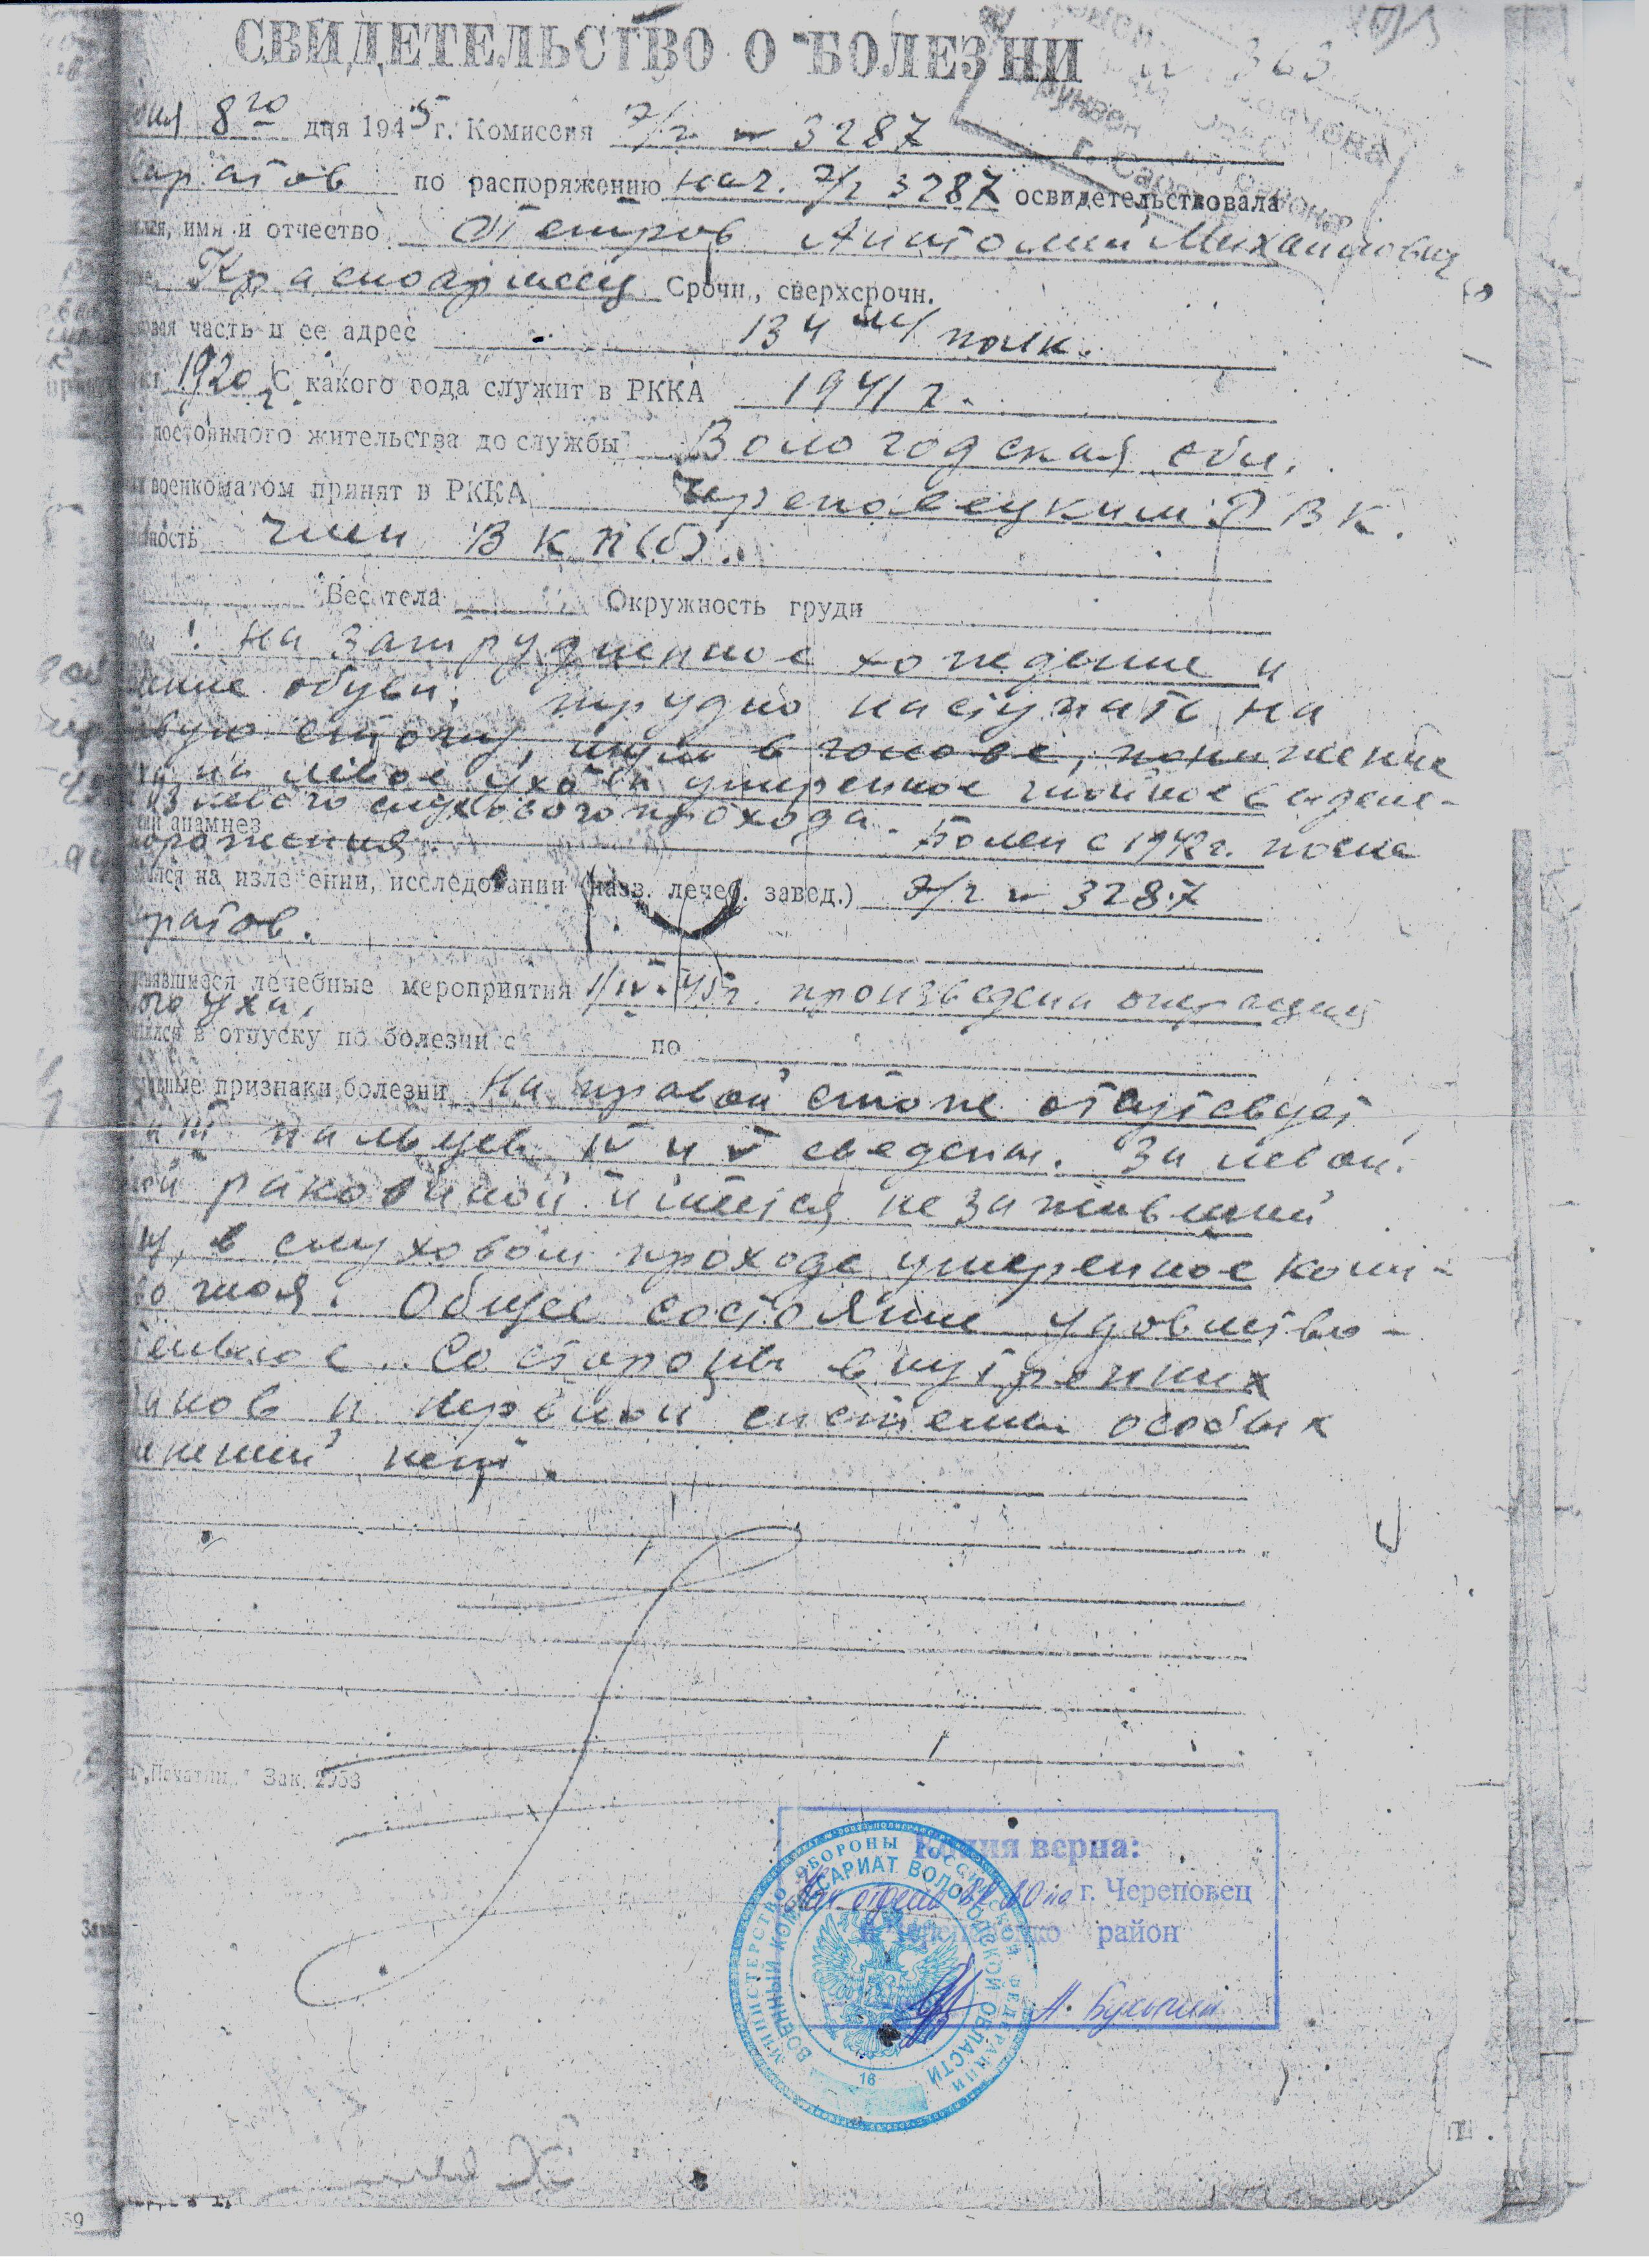 СВИДЕТЕЛЬСТВО О БОЛЕЗНИ
363
8го дня 1945 г. Комиссия э/г № 3287
по распоряжению нач. э/г 3287 освидетельствовала
имя и отчество Петров Анатолий Михайлович
Красноармеец Срочн., сверхсрочн.
часть и ее адрес 134 полк.
1920 г. С какого года служит в РККА 1941 г.
постоянного жительства до службы Вологодская обл.
военкоматом принят в РККА Череповецким РВК.
ность член ВКП(б).
Вес тела Окружность груди
на затрудненное хождение и
шение обуви, трудно наступать на
вую стопу, шум в голове, понижение
на левое ухо и умеренное гнойное выделе-
из левого слухового прохода.
анамнез Болен с 1942 г. после
ился на излечении, исследовании (назв. лечеб. завед.) э/г № 3287
ратов.
нявшиеся лечебные мероприятия 1/IV-45 г. произведена операция
ого уха.
в отпуску по болезни с по
признаки болезни На правой стопе отсутствует
и III пальцев IV и V сведены. За левой
ной раковиной имеется не заживший
в слуховом проходе умеренное коли-
во гноя. Общее состояние удовлетво-
тельное. Со стороны внутренних
ганов и нервной системы особых
менений нет.
Зак. 2953
Копия верна:
г. Череповец
район
МИНИСТЕРСТВО ОБОРОНЫ РОССИЙСКОЙ ФЕДЕРАЦИИ
ВОЕННЫЙ КОМИССАРИАТ ВОЛОГОДСКОЙ ОБЛАСТИ
16